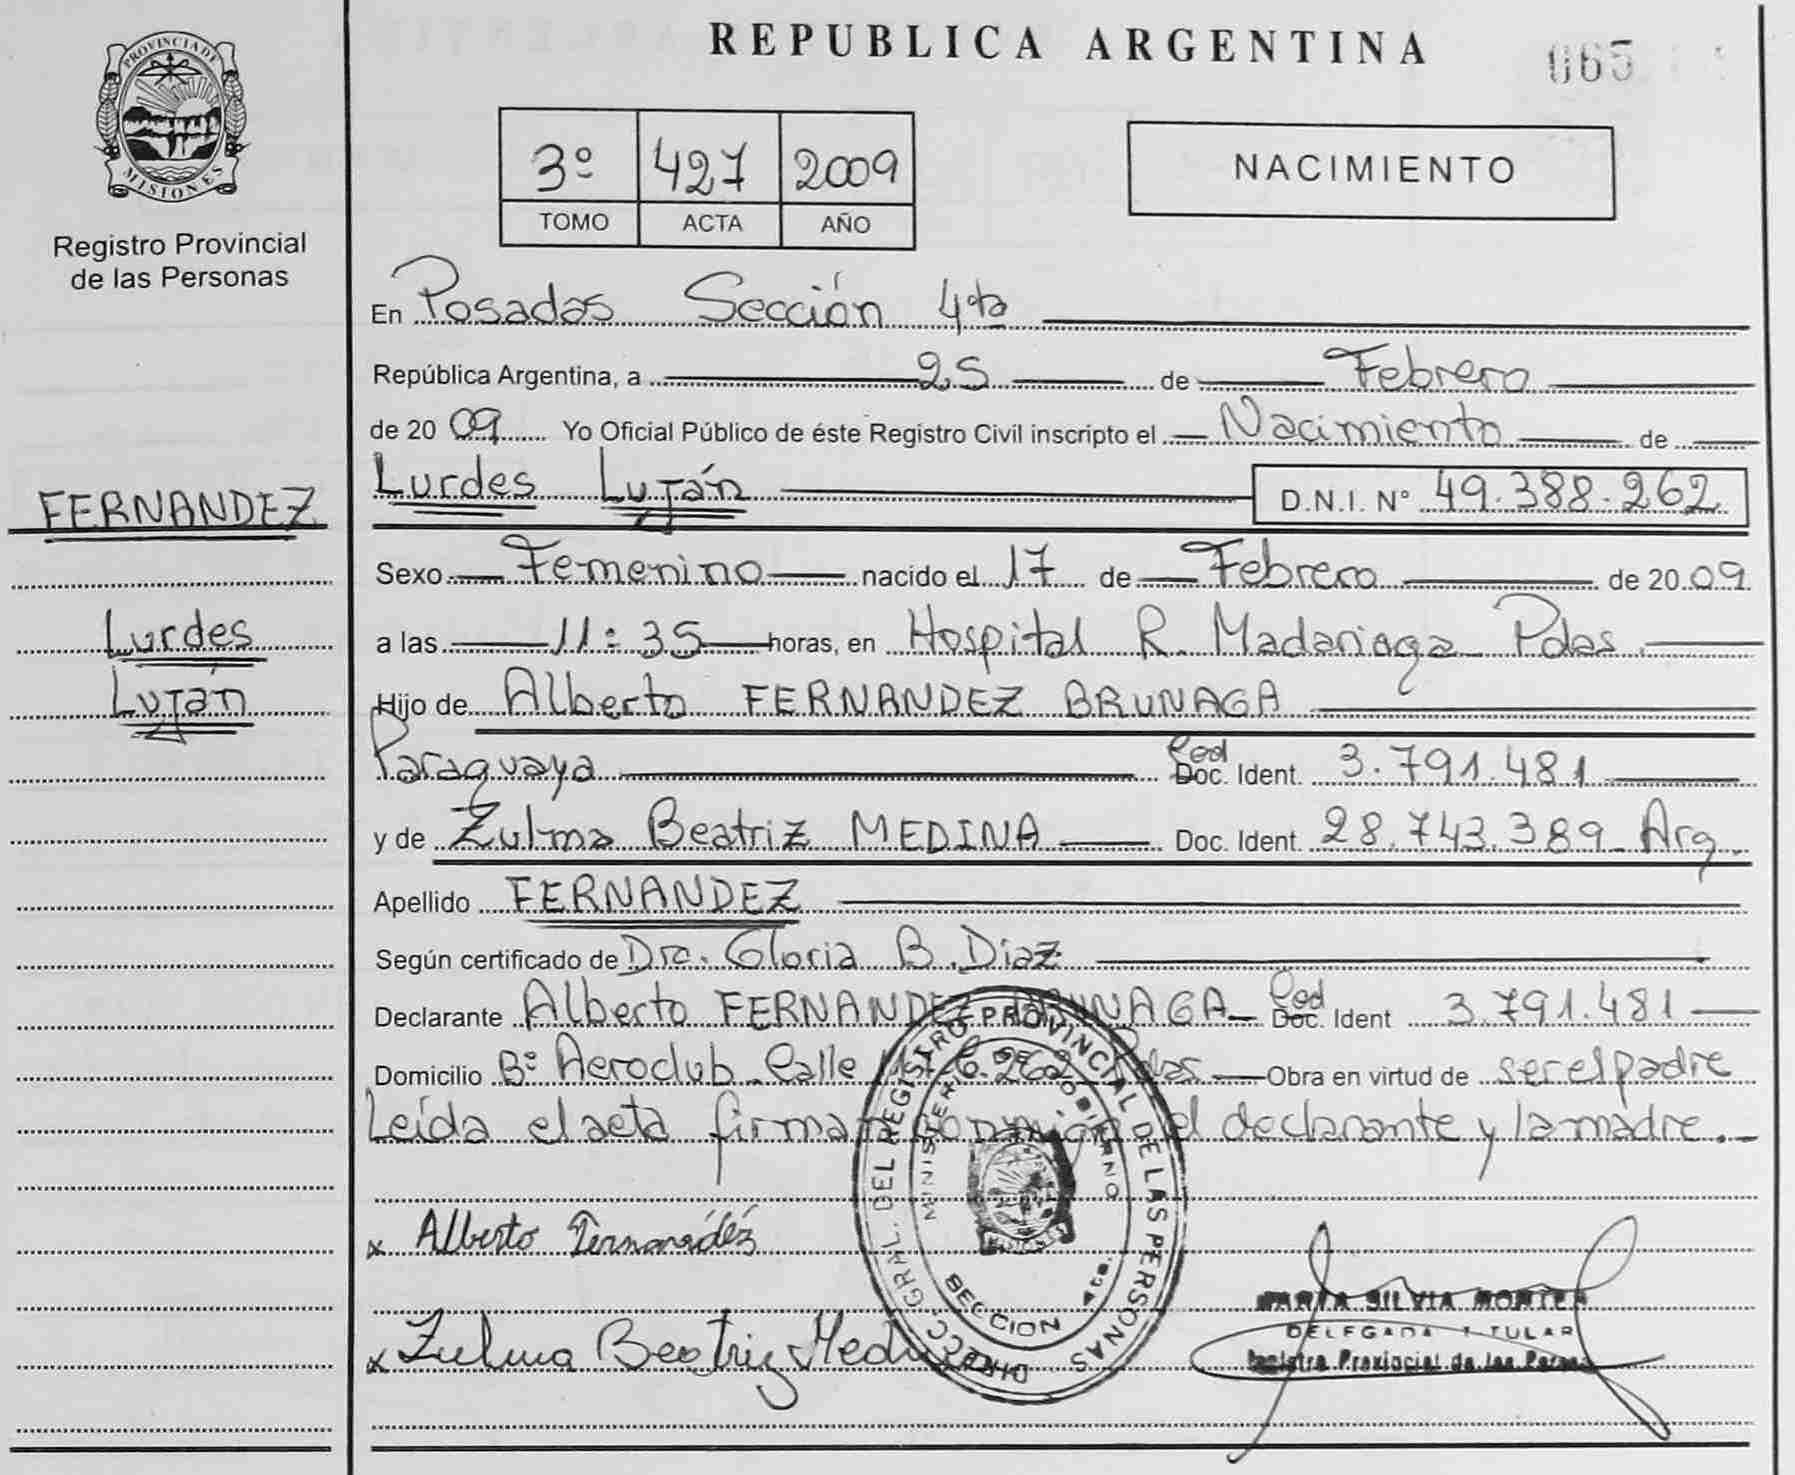 REPUBLICA ARGENTINA
065
PROVINCIA DE
MISIONES
Registro Provincial
de las Personas
3º 427 2009
TOMO ACTA AÑO
NACIMIENTO
En Posadas Sección 4ta
República Argentina, a 25 de Febrero
de 2009 Yo Oficial Público de éste Registro Civil inscripto el Nacimiento de
Lurdes Luján D.N.I. Nº 49.388.262
FERNANDEZ
Sexo Femenino nacido el 17 de Febrero de 2009
Lurdes
a las 11:35 horas, en Hospital R. Madariaga Pdas
Luján
Hijo de Alberto FERNANDEZ BRUNAGA
Paraguaya Ced Doc. Ident. 3.791.481
y de Zulma Beatriz MEDINA Doc. Ident. 28.743.389 Arg.
Apellido FERNANDEZ
Según certificado de Dra. Gloria B. Diaz
Declarante Alberto FERNANDEZ BRUNAGA Ced Doc. Ident 3.791.481
Domicilio Bº Aeroclub Calle Pdas Obra en virtud de ser el padre
Leída el acta firman conmigo el declarante y la madre.
Alberto Fernandéz
Zulma Beatriz Medina
DIRECC. GRAL. DEL REGISTRO PROVINCIAL DE LAS PERSONAS
MINISTERIO DE GOBIERNO
SECCION 4ta.
MARIA SILVIA
DELEGADA TITULAR
Registro Provincial de las Personas